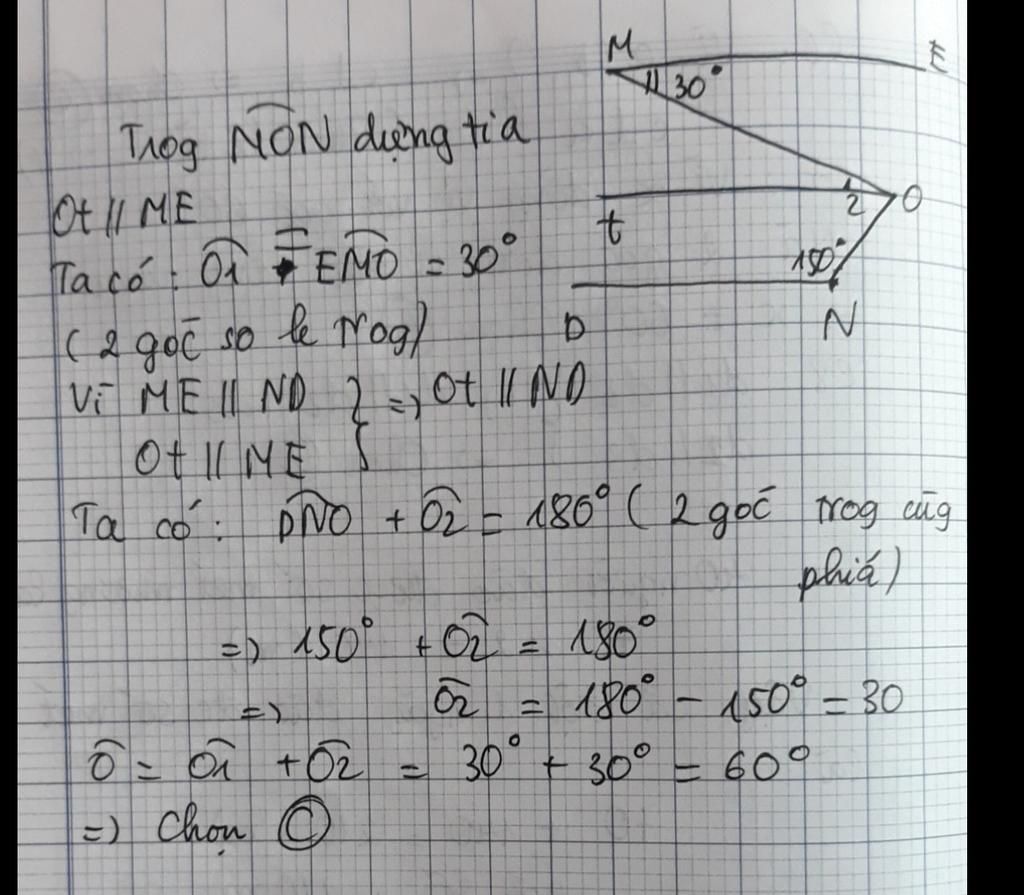 M
E
30°
Trog MON dựng tia
Ot // ME
O
2
t
150°
Ta có: O1 = EMO = 30°
D
N
( 2 góc so le trog)
Vì ME // ND } => Ot // ND
Ot // ME
Ta có: DNO + O2 = 180° ( 2 góc trog cùg
phiá)
=> 150° + O2 = 180°
=> O2 = 180° - 150° = 30
O = O1 + O2 = 30° + 30° = 60°
=> Chọn C